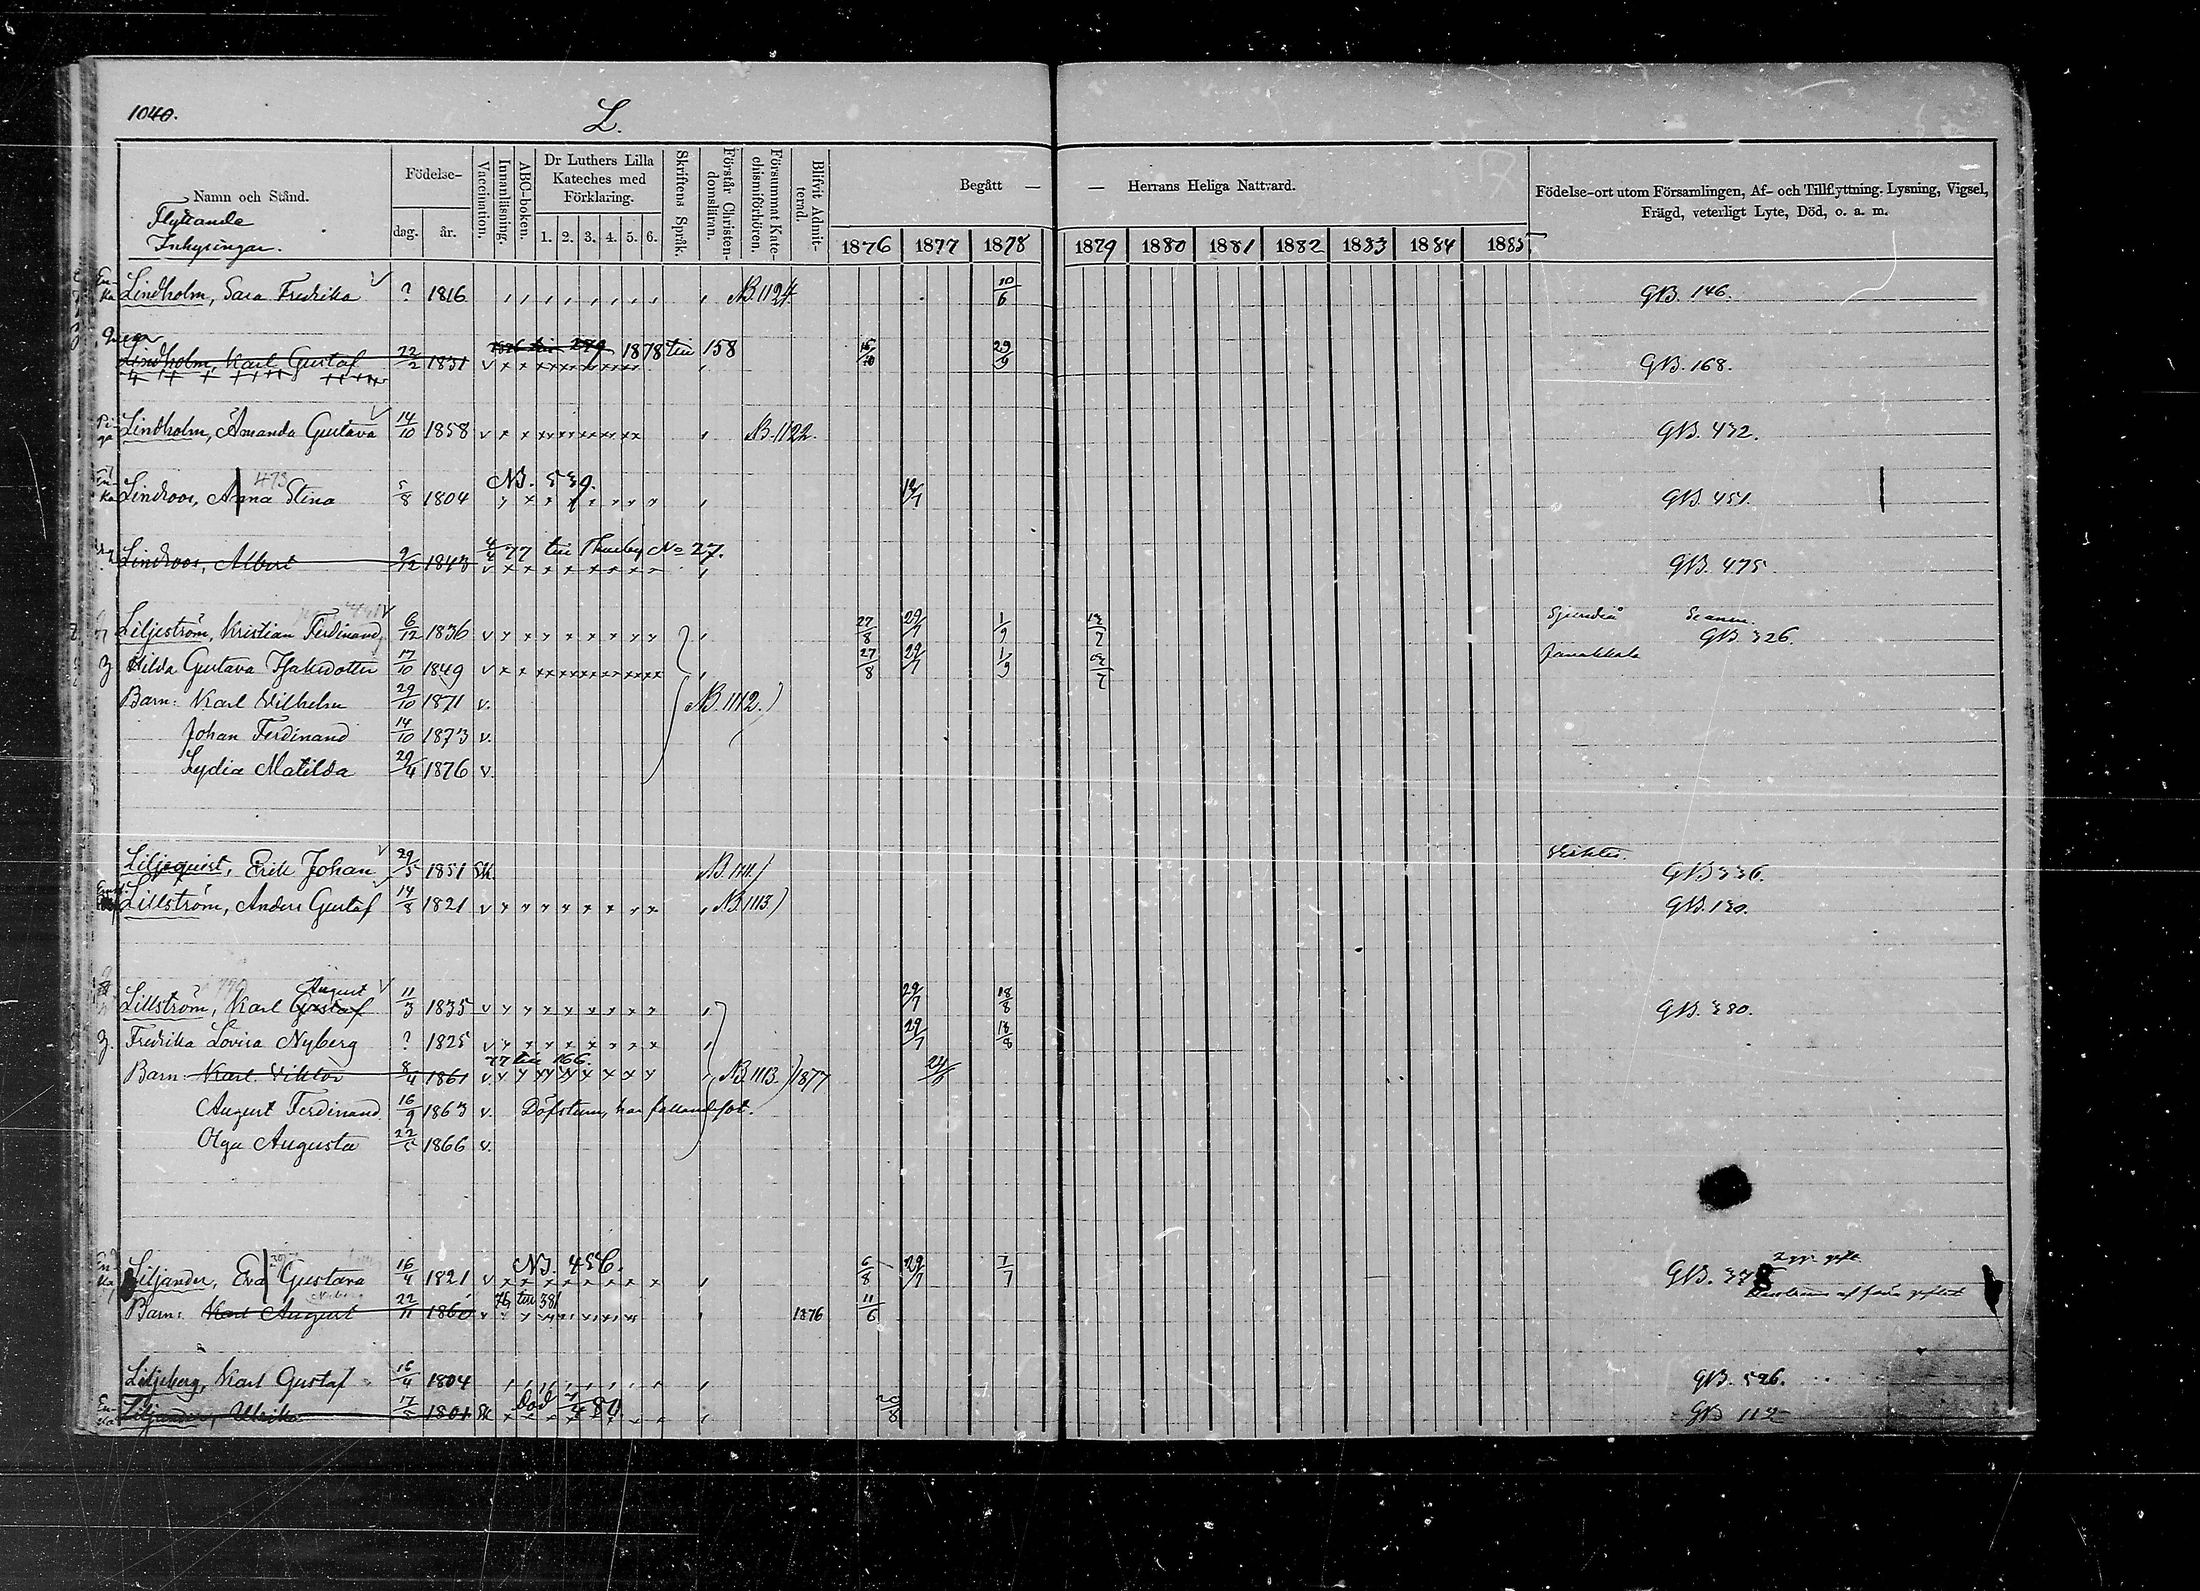 1040.
L.
Namn och Stånd.
Flyttande
Inhysingar.
Födelse-
dag. år.
Vaccination.
Innanläsning.
ABC-boken.
Dr Luthers Lilla
Kateches med
Förklaring.
1. 2. 3. 4. 5. 6.
Skriftens Språk.
Förstår Christen-
domsläran.
Försummat Kate-
chismiförhören.
Blifvit Admit-
terad.
Begått — — Herrans Heliga Nattvard.
1876 1877 1878 1879 1880 1881 1882 1883 1884 1885
Födelse-ort utom Församlingen, Af- och Tillflyttning. Lysning, Vigsel,
Frägd, veterligt Lyte, Död, o. a. m.
En-ka Lindholm, Sara Fredrika ? 1816 NB. 1124. 10/6 GB. 146.
Lindholm, Karl Gustaf 22/2 1831 v 1878 till 158 15/10 29/9 GB. 168.
Pi-ga Lindholm, Amanda Gustava 14/10 1858 v NB. 1122. GB. 432.
473 NB. 539.
En-ka Lindroos, Anna Stina 5/8 1804 GB. 451.
4/4 77 till Thusby No 27.
Lindroos, Albert 9/12 1843 v GB. 475.
Liljeström, Kristian Ferdinand 6/12 1836 v 27/8 29/7 1/9 13/7 Sjundeå GB. 326.
Hilda Gustava Isaksdotter 17/10 1849 v 27/8 29/7 1/9 Janakkala
Barn: Karl Vilhelm 29/10 1871 v. NB. 1112.
Johan Ferdinand 14/10 1873 v.
Lydia Matilda 29/4 1876 v.
Liljequist, Erik Johan 29/5 1851 Sk. NB. 1111 Vichtis. GB 336.
Lillström, Anders Gustaf 14/8 1821 v NB. 1113 GB. 130.
August
Lillström, Karl Gustaf 11/3 1835 v 29/7 18/8 GB. 380.
Fredrika Lovisa Nyberg ? 1825 v 29/7 18/8
77 till 166.
Barn: Karl Viktor 8/4 1861 v NB. 1113. 1877
August Ferdinand 16/9 1863 v. Döfstum, har fallandesot.
Olga Augusta 22/5 1866 v.
NB. 456.
En-ka Liljander, Eva Gustava 16/4 1821 v 6/8 29/7 7/7 GB. 378
76 till 381
Barn: Karl August 22/11 1860 v 1876 11/6
Liljeberg, Karl Gustaf 16/4 1804 GB. 526.
Död 7/4 80.
En-ka Liljander, Ulrika 17/5 1801 Sk 20/8 GB 112